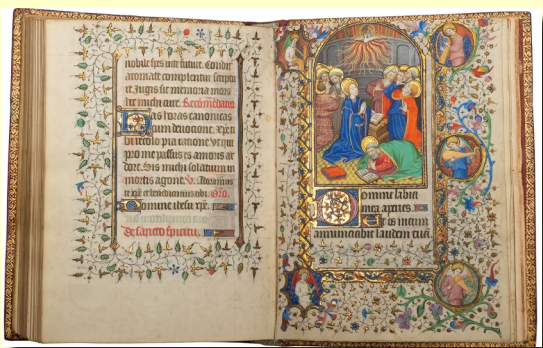 nobile fres uite future. Condit
aromate complentur scriptu
re. Iugis sit memoria mors
hec michi cure. Recomēdatio.
as horas canonicas
cum deuocione. xp̄e
pia ratione. ut qui
pro me passus es amoris ar
dore. Sis michi solacium in
mortis agone. V. Adoramus
te xp̄e et benedicimus tibi. Oro.
omine ihesu xp̄e.
De sancto spiritu.
Domine labia
mea aperies.
Et os meum
annunciabit laudem tuā.